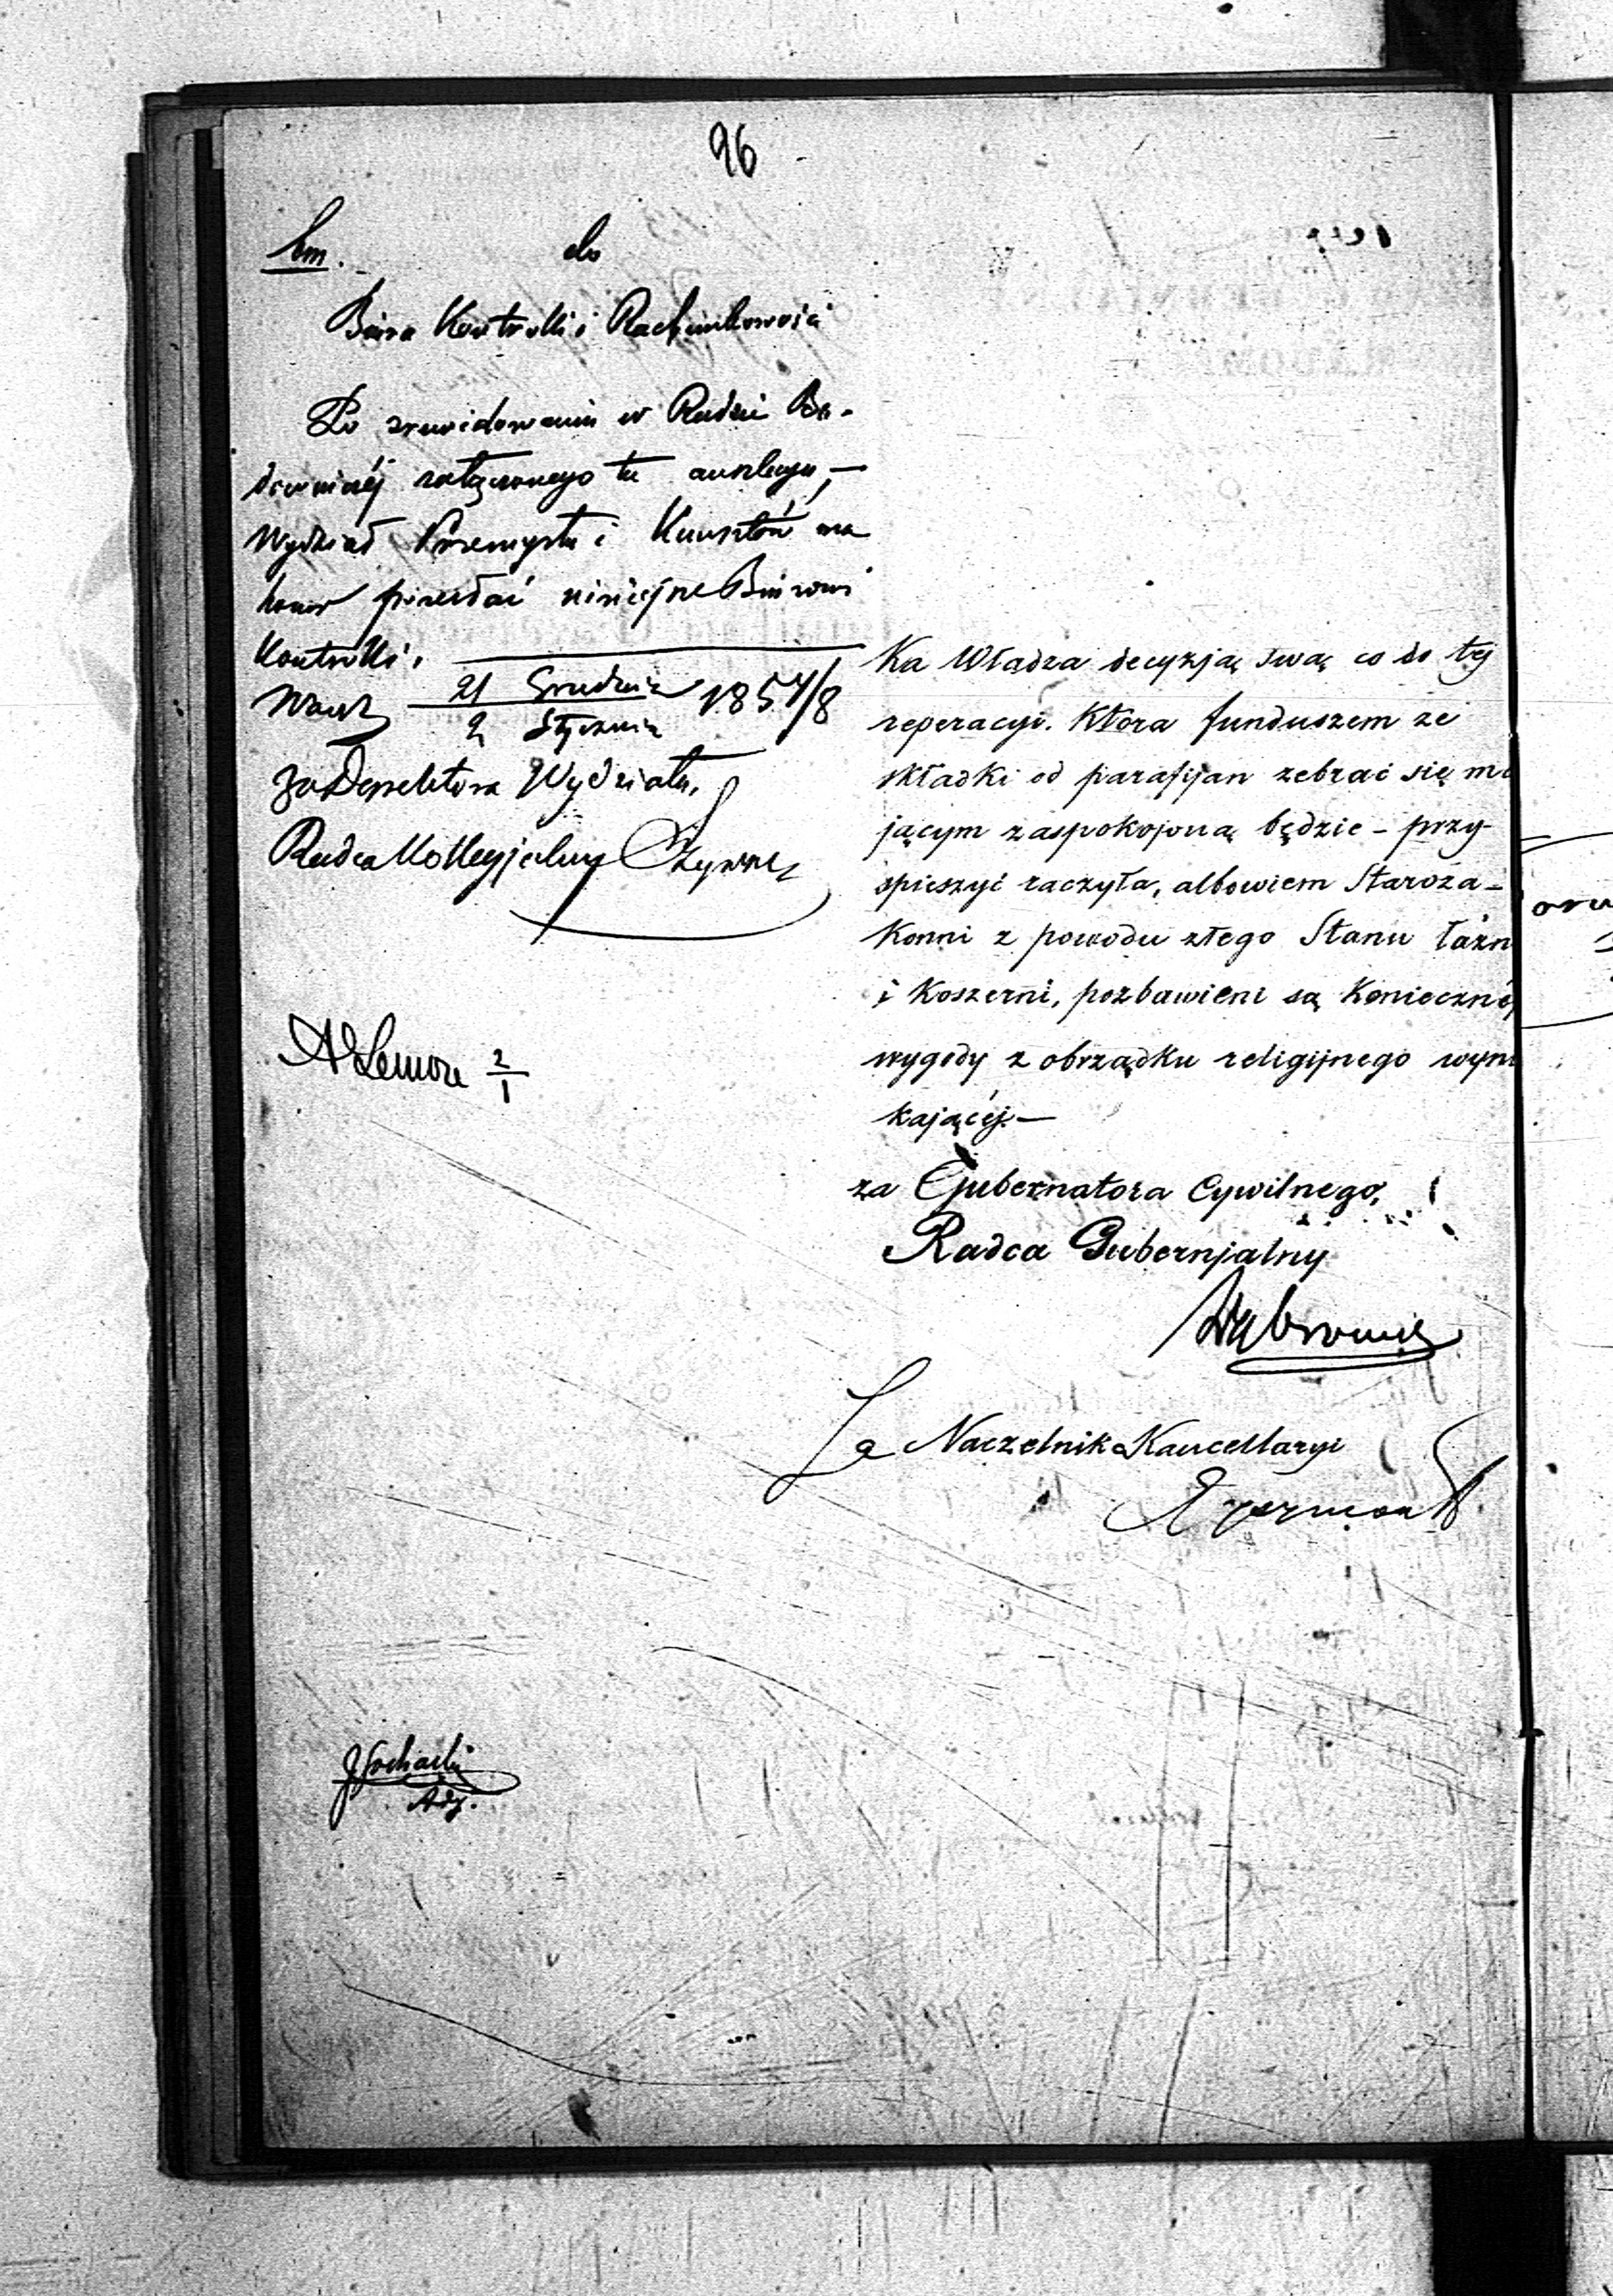 96
do
Biura Kontrolli i Rachunkowości
Po zrewidowaniu w Radzie Bu-
downiczéj załączonego tu anszlagu, —
Wydział Przemysłu i Kunsztów ma
honor przesłać niniejsze Biurowi
Kontrolli. —
21 Grudnia
2 Stycznia 1857/8
za Dyrektora Wydziału,
Radca Kollegjalny
2/1
Adj.
Ka Władza decyzją swą co do téj
reperacyi. Która funduszem ze
składki od parafijan zebrać się ma
jącym zaspokojoną będzie – przy-
spieszyć raczyła, albowiem Staroza-
Konni z powodu złego Stanu łaźn
i Koszerni, pozbawieni są Koniecznéj
wygody z obrządku religijnego wyni
kającéj. —
za Gubernatora Cywilnego,
Radca Gubernjalny
Za Naczelnik Kancellaryi